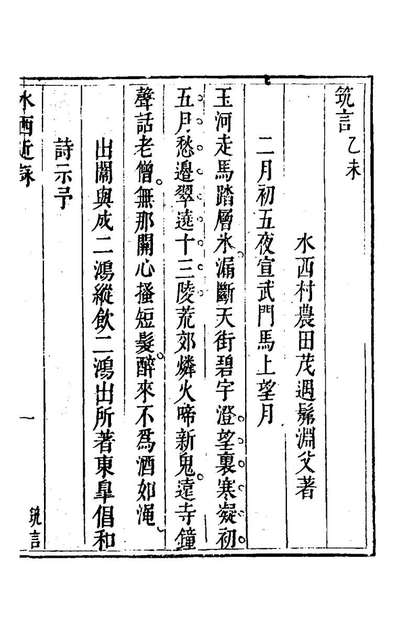 筑言 乙未
水西村農田茂遇髴淵父著
二月初五夜宣武門馬上望月
玉河走馬踏層氷漏斷天街碧宇澄望裏寒凝初
五月愁邊翠遶十三陵荒郊燐火啼新鬼遠寺鐘
聲話老僧無那關心搔短髮醉來不爲酒如澠
出關與成二鴻縱飲二鴻出所著東臯倡和
詩示予
水西近
一
筑言